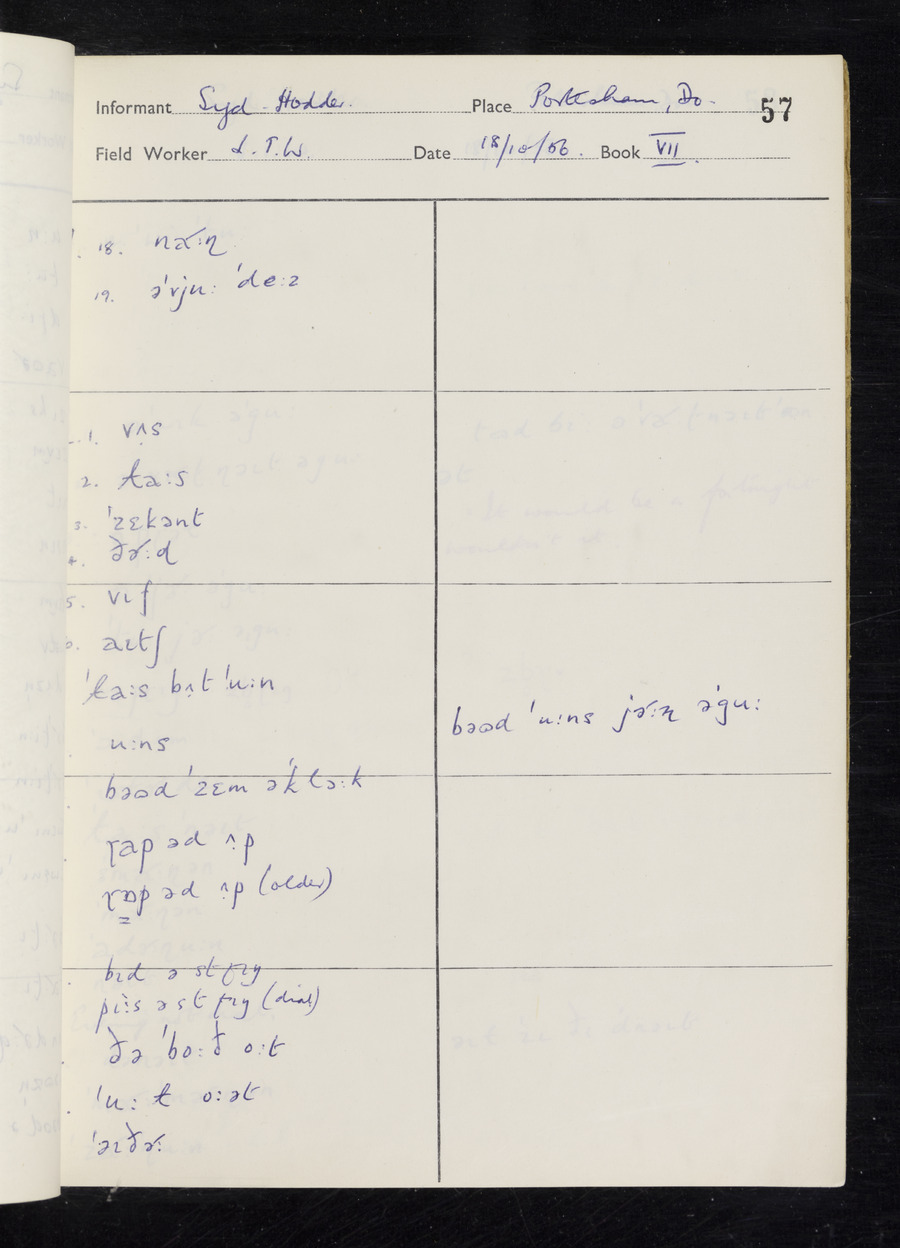 Informant Syd. Hodder. Place Portesham, Do. 57
Field Worker S.T.W. Date 18/10/56. Book VII.
18.
19. ə'vjuː 'deːz
1. vʌs
2. taːs
3. 'zɛkənt
4. ðɚːd
5. vɪf
aɪtʃ
'taːs bʌt 'uːn
uːns
bəʊd 'uːns jɚːɳ ə'guː
bəʊd 'zɛm ə'klɔːk
ɽap əd ʌp
ɽɒp əd ʌp (older)
bɪd ə stɹɪŋ
piːs ə stɹɪŋ (dial)
ðə 'boːð oːt
'uː t oːət
'əɪðɚː